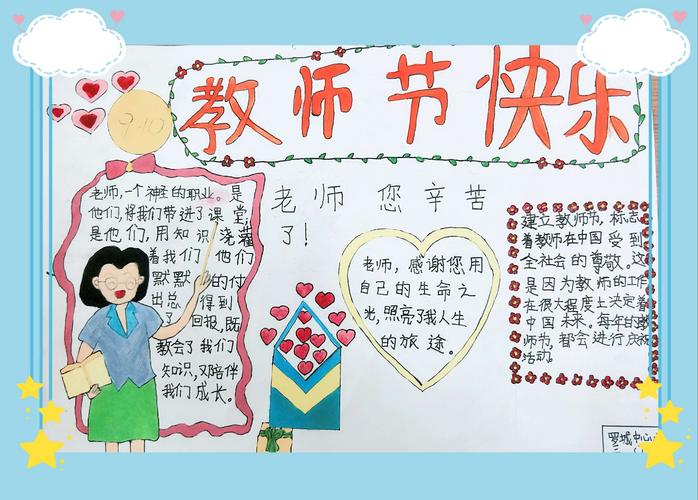 教师节快乐
9.10
老师,一个神圣的职业。是
他们,将我们带进了课堂;
是他们,用知识浇灌
着我们 他们
默默 的付
出总 得到
了 回报,既
教会了我们
知识,又陪伴
我们成长。
老师 您辛苦
了!
老师,感谢您用
自己的生命之
光,照亮了我人生
的旅途。
建立教师节,标志
着教师在中国受到
全社会的尊敬。这
是因为教师的工作
在很大程度上决定着
中国未来。每年的教
师节,都会进行庆祝
活动。
罗城中心